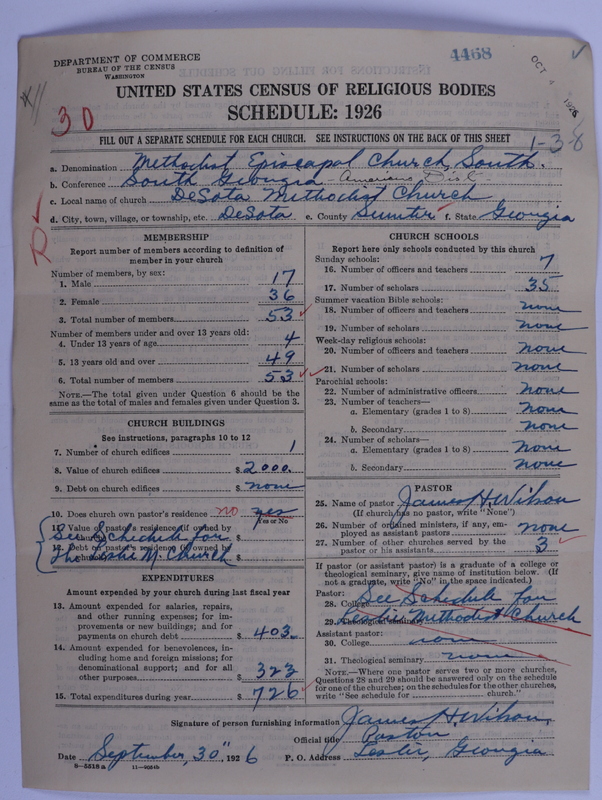 4468
OCT 4 1926
DEPARTMENT OF COMMERCE
BUREAU OF THE CENSUS
WASHINGTON
UNITED STATES CENSUS OF RELIGIOUS BODIES
SCHEDULE: 1926
30
FILL OUT A SEPARATE SCHEDULE FOR EACH CHURCH. SEE INSTRUCTIONS ON THE BACK OF THIS SHEET
1-3-8
a. Denomination Methodist Episcapal Church, South.
b. Conference South Georgia - Americus Dist
c. Local name of church DeSota Methodist Church
d. City, town, village, or township, etc. DeSota e. County Sumter f. State Georgia
R
MEMBERSHIP
Report number of members according to definition of
member in your church
Number of members, by sex:
1. Male 17
2. Female 36
3. Total number of members 53
Number of members under and over 13 years old:
4. Under 13 years of age 4
5. 13 years old and over 49
6. Total number of members 53
NOTE.—The total given under Question 6 should be
the same as the total of males and females given under Question 3.
CHURCH BUILDINGS
See instructions, paragraphs 10 to 12
7. Number of church edifices 1
8. Value of church edifices $ 2000.
9. Debt on church edifices $ none
10. Does church own pastor's residence no yes
Yes or No
11. Value of pastor's residence (if owned by
church) $
See Schedule for
12. Debt on pastor's residence (if owned by
church) $
the Leslie M. Church
EXPENDITURES
Amount expended by your church during last fiscal year
13. Amount expended for salaries, repairs,
and other running expenses; for im-
provements or new buildings; and for
payments on church debt $ 403.
14. Amount expended for benevolences, in-
cluding home and foreign missions; for
denominational support; and for all
other purposes $ 323
15. Total expenditures during year $ 726
CHURCH SCHOOLS
Report here only schools conducted by this church
Sunday schools:
16. Number of officers and teachers 7
17. Number of scholars 35
Summer vacation Bible schools:
18. Number of officers and teachers none
19. Number of scholars none
Week-day religious schools:
20. Number of officers and teachers none
21. Number of scholars none
Parochial schools:
22. Number of administrative officers none
23. Number of teachers—
a. Elementary (grades 1 to 8) none
b. Secondary none
24. Number of scholars—
a. Elementary (grades 1 to 8) none
b. Secondary none
PASTOR
25. Name of pastor James H. Wilson
(If church has no pastor, write "None")
26. Number of ordained ministers, if any, em-
ployed as assistant pastors none
27. Number of other churches served by the
pastor or his assistants 3
If pastor (or assistant pastor) is a graduate of a college or
theological seminary, give name of institution below. (If
not a graduate, write "No" in the space indicated.)
Pastor:
28. College See Schedule for
29. Theological seminary Leslie Methodist Church
Assistant pastor:
30. College none
31. Theological seminary none
NOTE.—Where one pastor serves two or more churches,
Questions 28 and 29 should be answered only on the schedule
for one of the churches; on the schedules for the other churches,
write "See schedule for church."
Signature of person furnishing information James H. Wilson,
Official title Pastor
Date September, 30" 1926 P. O. Address Leslie, Georgia
8—5318 a 11—9054b